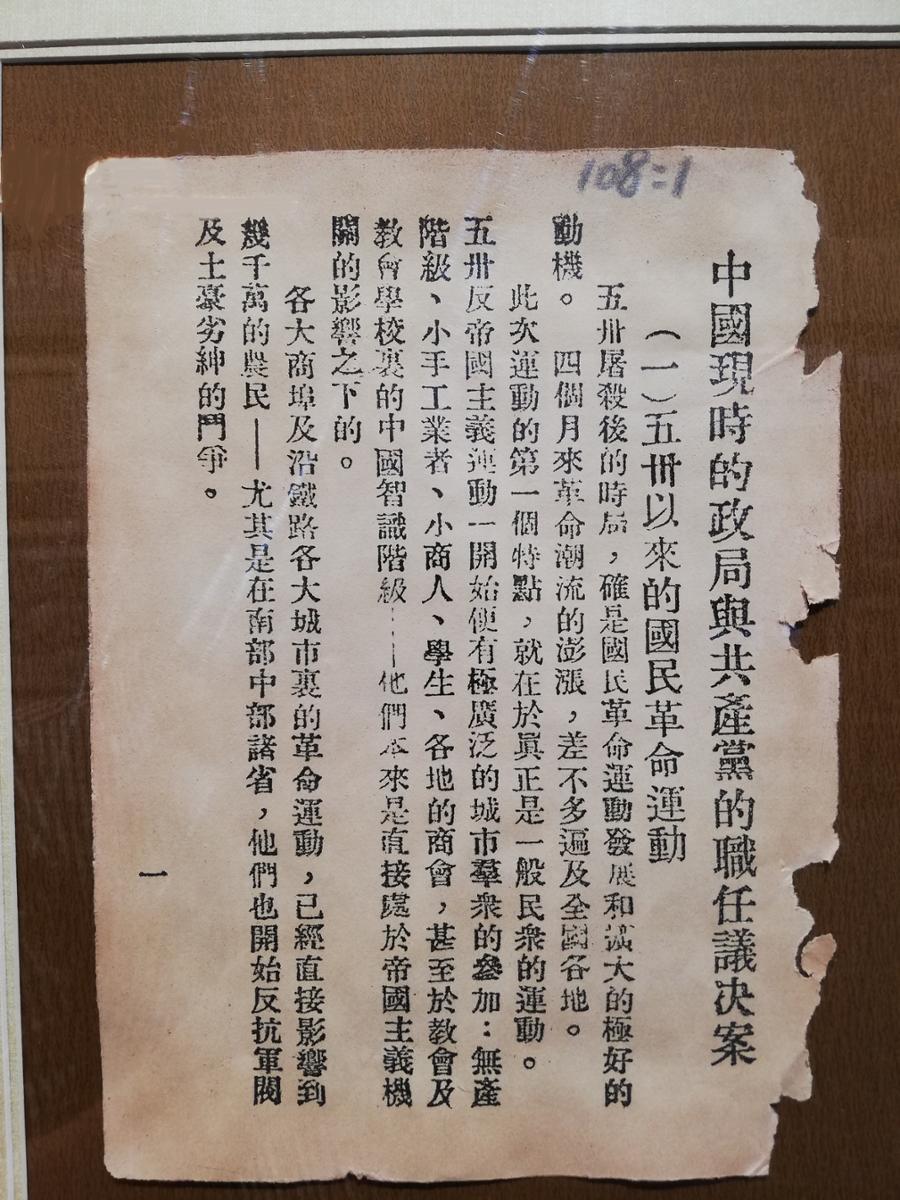 108:1
中國現時的政局與共產黨的職任議决案
（一）五卅以來的國民革命運動
五卅屠殺後的時局，確是國民革命運動發展和擴大的極好的
動機。　四個月來革命潮流的澎漲，差不多遍及全國各地。
此次運動的第一個特點，就在於眞正是一般民衆的運動。
五卅反帝國主義運動一開始便有極廣泛的城市羣衆的參加：無產
階級、小手工業者、小商人、學生、各地的商會，甚至於教會及
教會學校裏的中國智識階級……—他們本來是直接處於帝國主義機
關的影響之下的。
各大商埠及沿鐵路各大城市裏的革命運動，已經直接影響到
幾千萬的農民——尤其是在南部中部諸省，他們也開始反抗軍閥
及土豪劣紳的鬥爭。
一